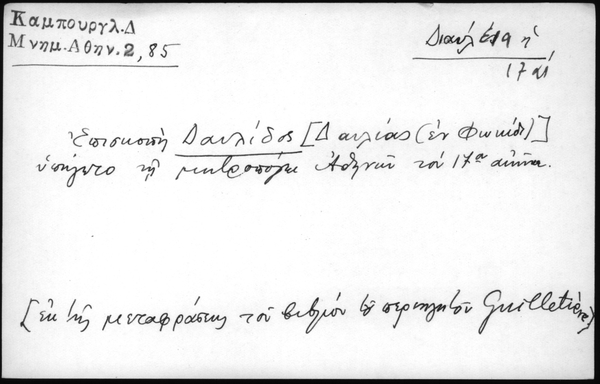 Καμπουργλ.Δ
Μνημ.Αθην.2,85
17 αἰ
Ἐπισκοπὴ Δαυλίδος [Δαυλίας (ἐν Φωκίδι)]
ὑπήγετο τῇ μητροπόλει Ἀθηνῶν τὸν 17ον αἰῶνα.
[ἐκ τῆς μεταφράσεως τοῦ βιβλίου τοῦ περιηγητοῦ Guilletière]